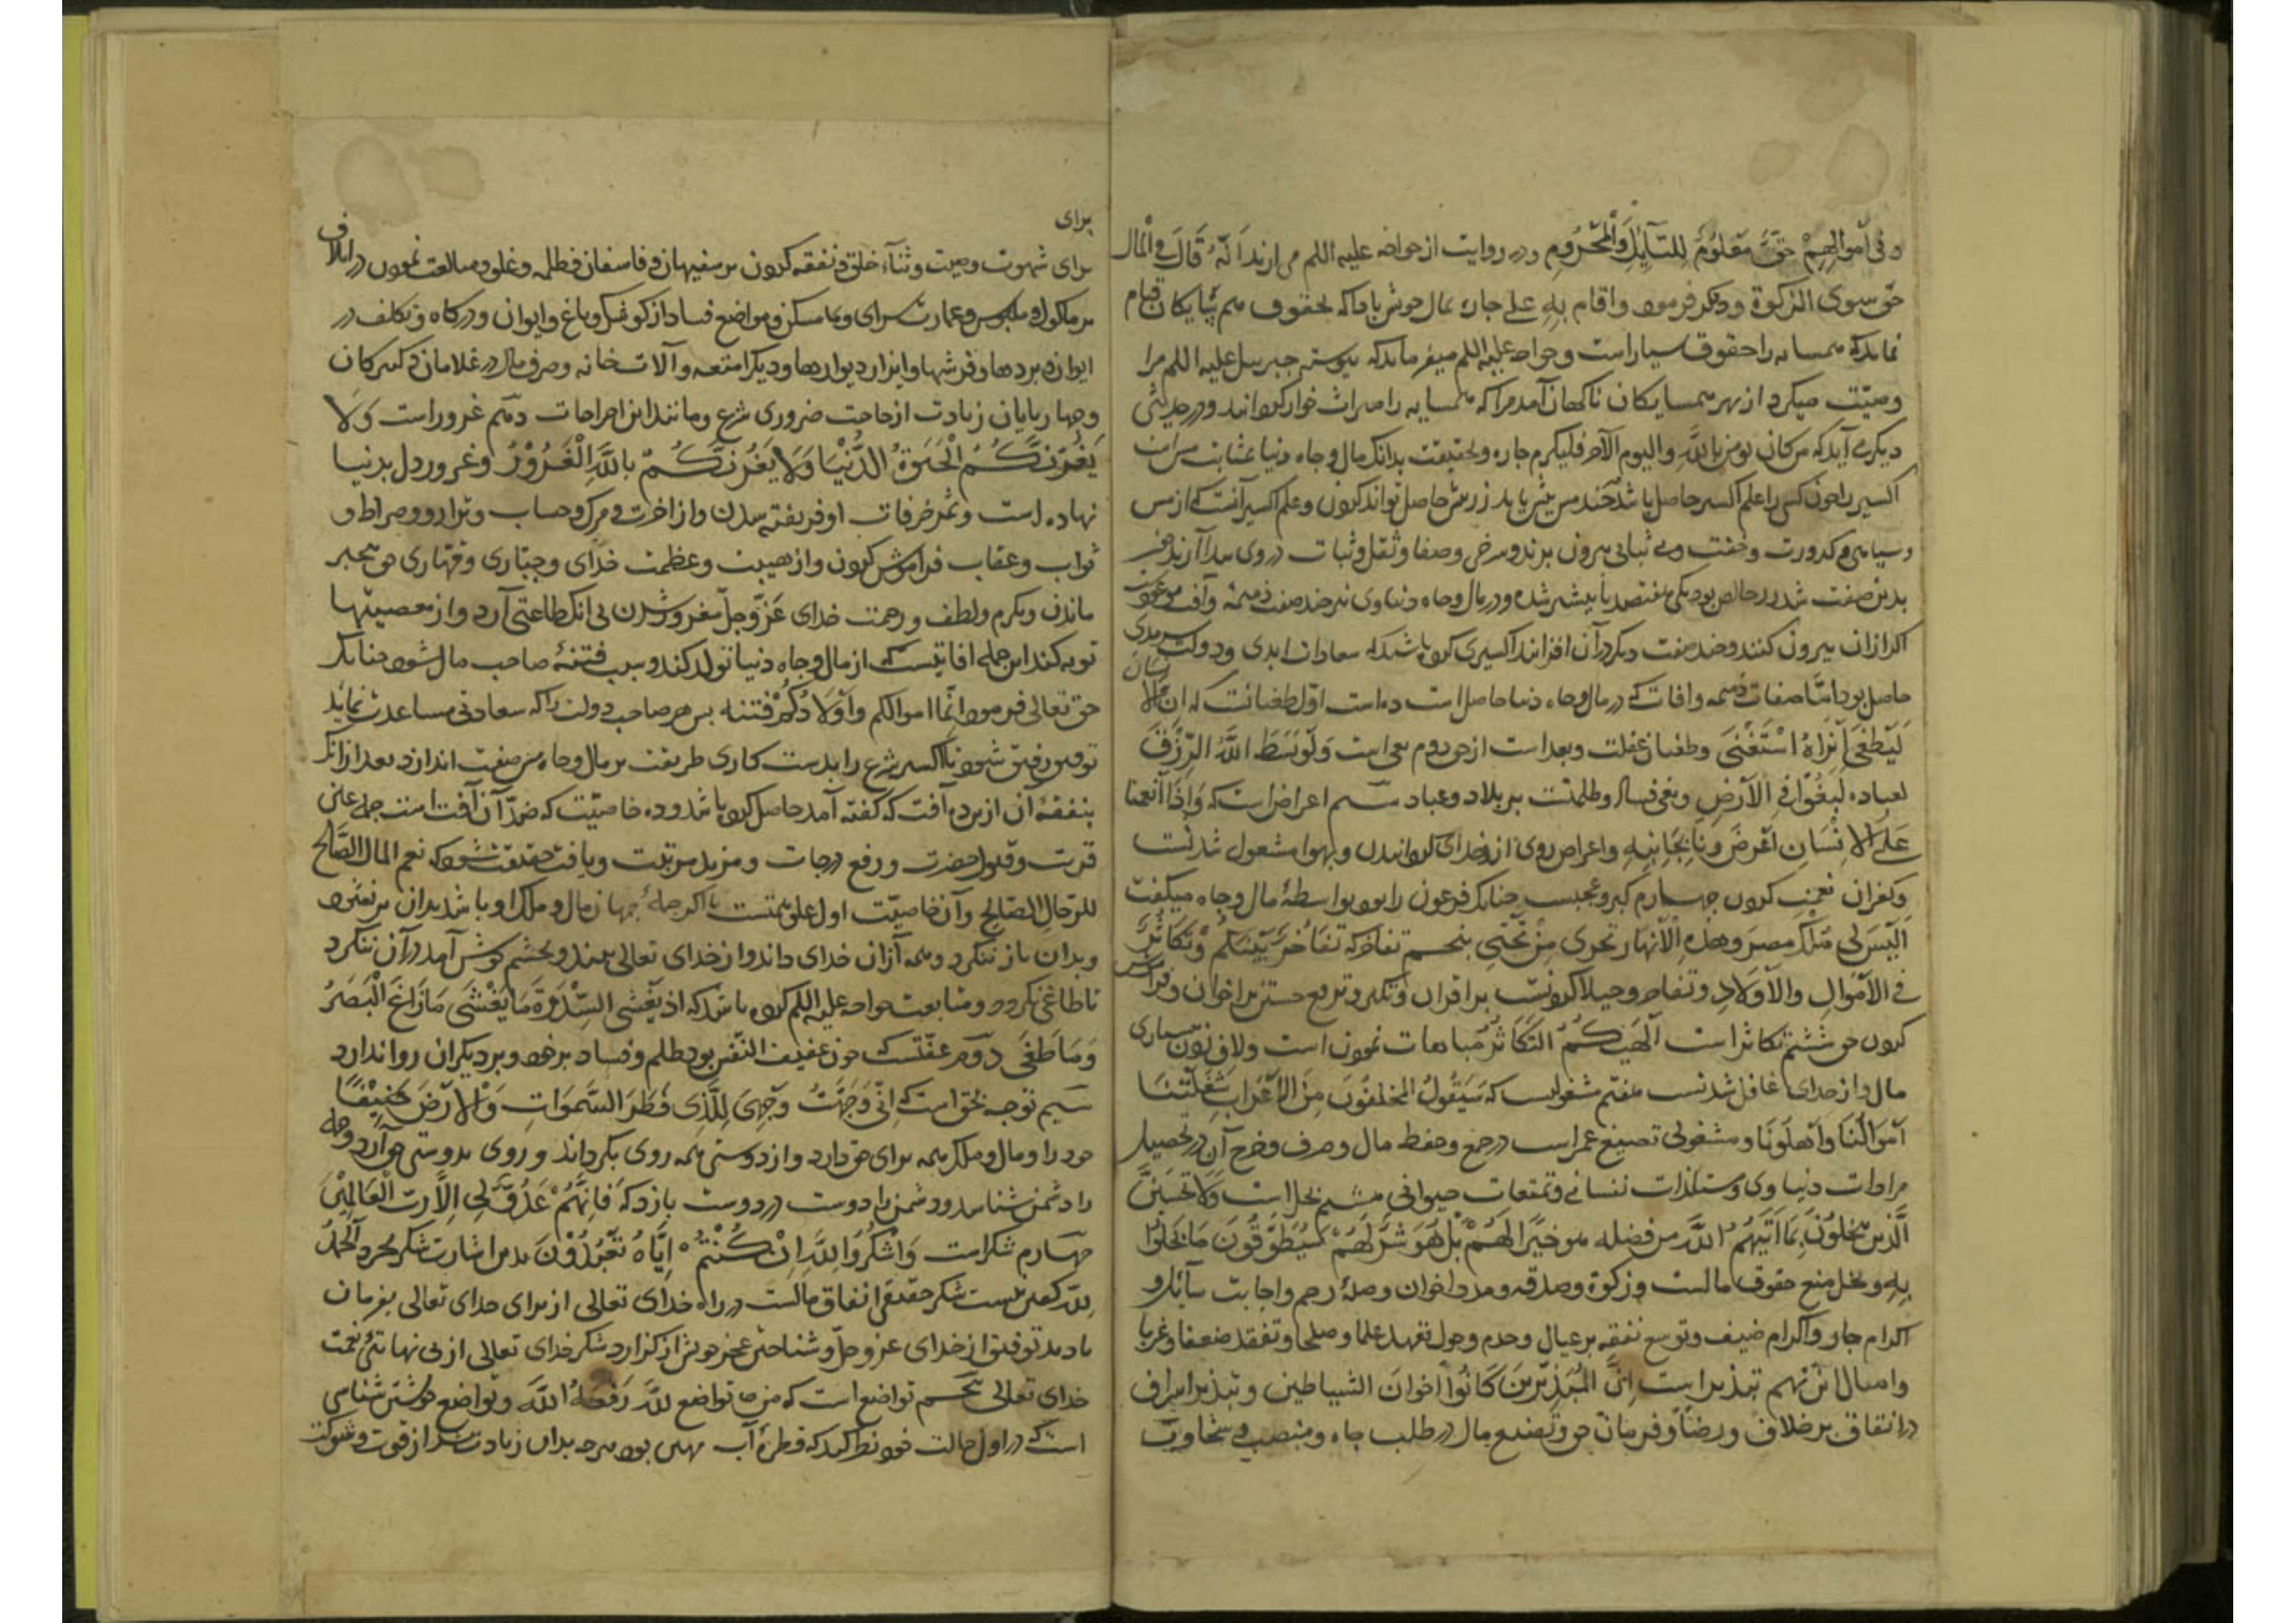 و فی اَموالِهِمْ حَقٌّ مَعْلُومٌ لِلسَّآئِلِ وَالْمَحْرُومِ و در روایت از خواجه علیه السلم می آرند اَنّهُ قَالَ فی الْمال
حق سوی الزکوة و دیگر فرموده و اقام به علی جاره بمال خویش باداکه بحقوق همسایکان قیام
نماید که همسایه را حقوق بسیار است و خواجه علیه السلم میفرماید که پیوسته جبرییل علیه السلم مرا
وصیّت میکرد از بهر همسایکان تا کمان آمد مرا که همسایه را میراث خوار کرداند و در حدیثی
دیکر می آید که من کان یومن بالله و الیوم الآخر فلیکرم جاره و بحقیقت بدانک مال و جاه دنیا بمثابت مس است
اکسیر را چون کسی را علم اکسیر حاصل باشد چند مس بیش یابد زر بیش حاصل تواند کردن و علم اکسیر آنست که از مس
و سیاهی و کدورت و خفت و بی ثباتی بیرون برند و سرخی و صفا و ثقل و ثبات در وی پیدا آرند چون
بدین صفت شد زر خالص بود یکی بهفتصد یا بیشتر شده و در مال و جاه دنیاوی نیز چند صفت ذمیمه و آفت
اکر ازان بیرون کنند و چند صفت دیکر در آن افزایند اکسیری کرده باشد که سعادات ابدی و دولت سرمدی
حاصل بود امّا صفات ذمیمه و افات که در مال و جاه دنیا حاصل است ده است اوّل طغیانست که ان الانسان
لَیَطْغَی اَنْ رَاهُ اسْتَغْنَی و طغیان غفلت و بعد است از حق دوم بغی است وَلَوْ بَسَطَ اللهُ الرِّزْقَ
لعباده لَبَغَوْا فِی الْاَرْضِ و بغی فساد و ظلمت بر بلاد و عباد سیم اعراض است که وَاِذَا اَنْعَمْنَا
عَلَی الْاِنْسَانِ اَعْرَضَ وَنَاَ بِجَانِبِهِ و اعراض روی از خدای کردانیدن و بهوا مشغول شدنست
و کفران نعمت کردن چهارم کبر و عجبست چنانک فرعون را بود بواسطۀ مال و جاه میکفت
اَلَیْسَ لِی مُلْکُ مِصْرَ وَهذِهِ الْاَنْهَارُ تَجْرِی مِنْ تَحْتِی پنجم تفاخر که تَفَاخُرٌ بَیْنَکُمْ وَتَکَاثُرٌ
فِی الْاَمْوَالِ وَالْاَوْلَادِ و تفاخر و خیلا کردنست بر اقران و تکبر و ترفع جستن بر اخوان
کردن حق ششم تکاثر است اَلْهَیکُمُ التَّکَاثُرُ مباهات نمودن است و لاف زدن به بسیاری
مال و از خدای غافل شدنست هفتم مشغولیست که سَیَقُولُ الْمُخَلَّفُونَ مِنَ الْاَعْرَابِ شَغَلَتْنَا
اَمْوَالُنَا وَاَهْلُونَا و مشغولی تضییع عمر است در جمع و حفظ مال و صرف و خرج آن در تحصیل
مرادات دنیاوی و مستلذات نفسانی و تمتعات حیوانی هشتم بخل است وَلَا تَحْسَبَنَّ
الَّذِینَ یَبْخَلُونَ بِمَا اٰتَیهُمُ اللهُ من فضله هو خَیْرًا لَهُمْ بَلْ هُوَ شَرٌّ لَهُمْ سَیُطَوَّقُونَ مَا بَخِلُوا
بِهِ و بخل منع حقوق مالست و زکوة و صدقه و مدد اخوان و صلۀ رحم و اجابت سائل و
اکرام جار و اکرام ضیف و توسع نفقه بر عیال و خدم و خول تعهد علما و صلحا و تفقد ضعفا و غربا
و امثال این نهم تبذیر است اِنَّ الْمُبَذِّرِینَ کَانُوا اِخْوَانَ الشیاطین و تبذیر اسراف
در انفاق بر خلاف و رضا و فرمان حق و تضییع مال در طلب جاه و منصب و سخاوت
برای
برای شهوت وصیت و ثناء خلق و نفقه کردن بر سفیهان و فاسقان و ظلمه و غلو و مبالغت نمودن در اتلاف
بر ماکول و ملبوس و عمارت سرای و مساکن و مواضع فساد از کوشک و باغ و ایوان و درکاه و تکلف در
ایوان و بردها و فرشها و ایزار دیوارها و دیکر امتعه و آلات خانه و صرف مال در غلامان و کنیزکان
و چهار پایان زیادت از حاجت ضروری شرع و مانند این اخراجات دهم غرور است وَلَا
یَغُرَّنَّکُمُ الْحَیَوةُ الدُّنْیَا وَلَا یَغُرَّنَّکُمْ بِاللهِ الْغَرُورُ و غرور دل بدنیا
نهاده است و بمزخرفات او فریفته شدن و از آخرت و مرک و حساب و ترازو و صراط و
ثواب و عقاب فراموش کردن و از هیبت و عظمت خدای و جبّاری و قهّاری حق بیخبر
ماندن و بکرم و لطف و رحمت خدای عَزّ و جلّ مغرور شدن بی انک طاعتی آرد و از معصیتها
توبه کند این جمله افاتیست که از مال و جاه دنیا تولد کند و سبب فتنۀ صاحب مال شود چنانک
حق تعالی فرمود اِنّما اموالکم وَاَوْلَادُکُمْ فتنه پس هر صاحب دولت را که سعادتی مساعدت نماید
توفیق رفیق شود تا اکسیر شرع را بدست کاری طریقت بر مال و جاه مس صفت اندازد بعد از انک
بنفقۀ آن ازین ده آفت که کفته آمد حاصل کرده باشد و ده خاصیّت که ضدّ آن آفت است جمله عین
قربت و قبول حضرت و رفع درجات و مزید مرتبت و یافت حقیقت شود که نعم المال الصّالح
للرّجال الصّالح و آن خاصیّت اول علو همتست تا اکر جملۀ جهان مال و ملک او باشد بدان
و بدان باز ننکرد و همه ازان خدای داند و از خدای تعالی بیند و بچشم کوشش آمد در آن ننکرد
تا طاغی نکردد و متابعت خواجه علیه السلم کرده باشد که اذ یَغْشَی السِّدْرَةَ مَا یَغْشَی مَا زَاغَ الْبَصَرُ
وَمَا طَغَی دوّم عفّتست که چون عفیف النّفس بود ظلم و فساد بر خود و بر دیکران روا ندارد
سیم توجه بحق است که اِنِّی وَجَّهْتُ وَجْهِیَ لِلَّذِی فَطَرَ السَّمَوَاتِ وَالْاَرْضَ حَنِیْفًا
خود را و مال و ملک همه برای حق دارد و از دوستی همه روی بکرداند و روی بدوستی حق آرد و جمله
را دشمن شناسد و دشمن را دوست در دوست بازد که فَاِنَّهُمْ عَدُوٌّ لِی اِلَّا رَبَّ الْعَالَمِیْنَ
چهارم شکر است وَاشْکُرُوا لِلّٰهِ اِنْ کُنْتُمْ اِیَّاهُ تَعْبُدُوْنَ بدین اشارت شکر مجرد الْحَمْدُ
لِلّٰه کفتن نیست شکر حقیقی انفاق مالست در راه خدای تعالی از برای خدای تعالی بفرمان
با دید توفیق از خدای عز و جلّ و شناختن عجز خویش از کزارد شکر خدای تعالی از بی نهایتی نعمت
خدای تعالی پنجم تواضع است که من تواضع لِلّٰه رَفَعَهُ الله و تواضع خویشتن شناسی
است که در اول حالت خود نظر کند که قطرۀ آب مهین بود هر چه بدان زیادت شد از قوت و شوکت